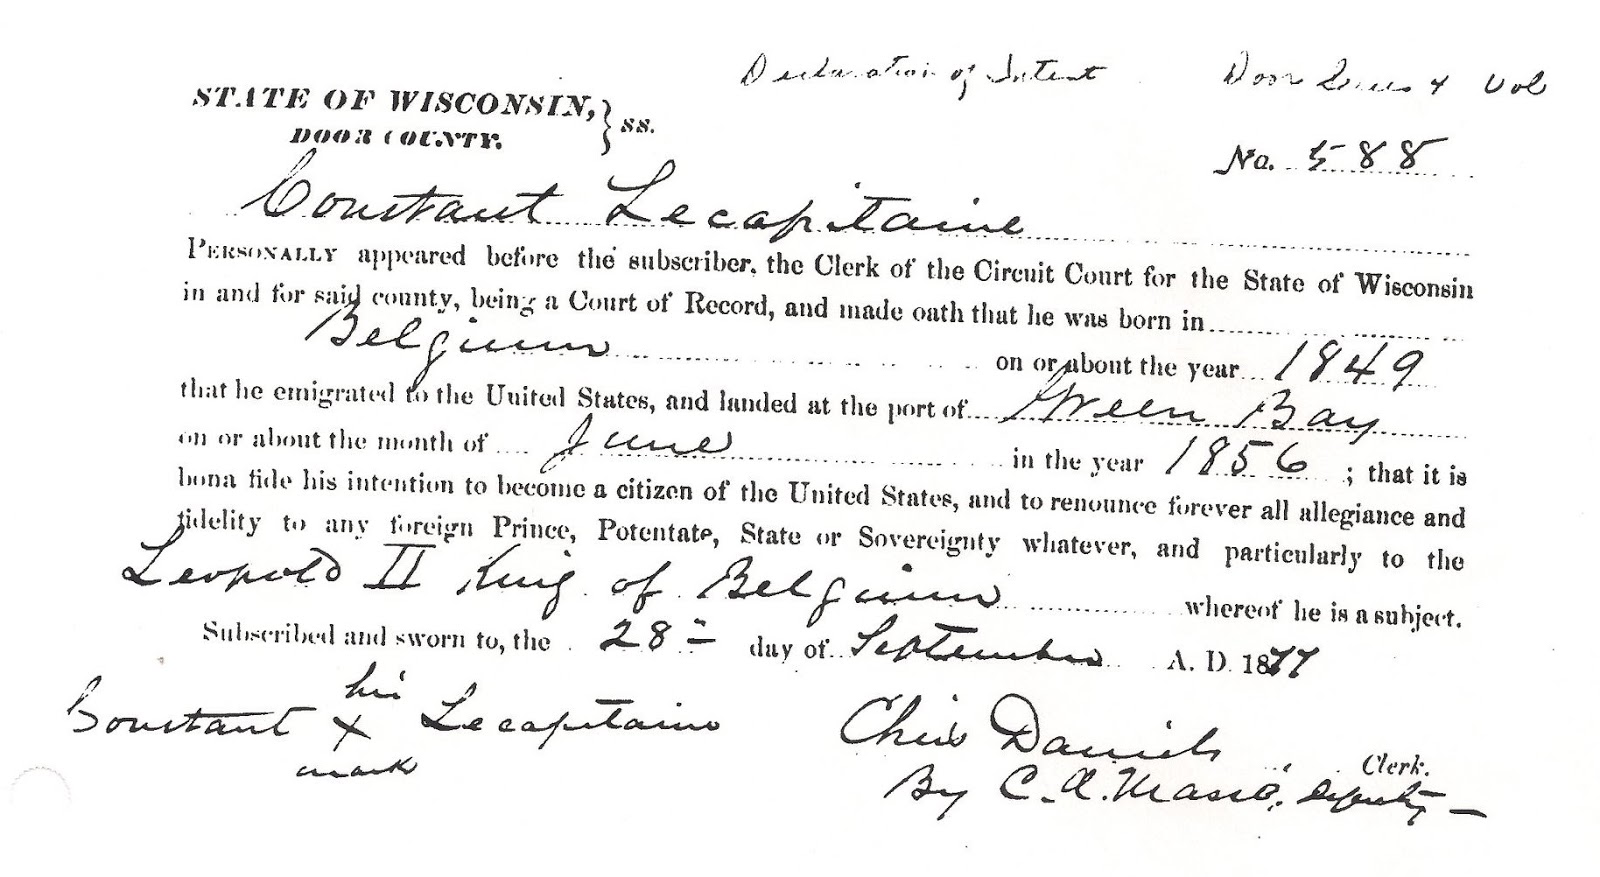 Declaration of Intent Door Series 4 Vol
STATE OF WISCONSIN, } ss.
DOOR COUNTY.
No. 588
Constant Lecapitaine
PERSONALLY appeared before the subscriber, the Clerk of the Circuit Court for the State of Wisconsin
in and for said county, being a Court of Record, and made oath that he was born in
Belgium on or about the year 1849
that he emigrated to the United States, and landed at the port of Green Bay
on or about the month of June in the year 1856 ; that it is
bona fide his intention to become a citizen of the United States, and to renounce forever all allegiance and
fidelity to any foreign Prince, Potentate, State or Sovereignty whatever, and particularly to the
Leopold II King of Belgium whereof he is a subject.
Subscribed and sworn to, the 28 = day of September A. D. 1877
his
Constant X Lecapitaine
mark
Daniels Clerk.
By C. A. Deputy